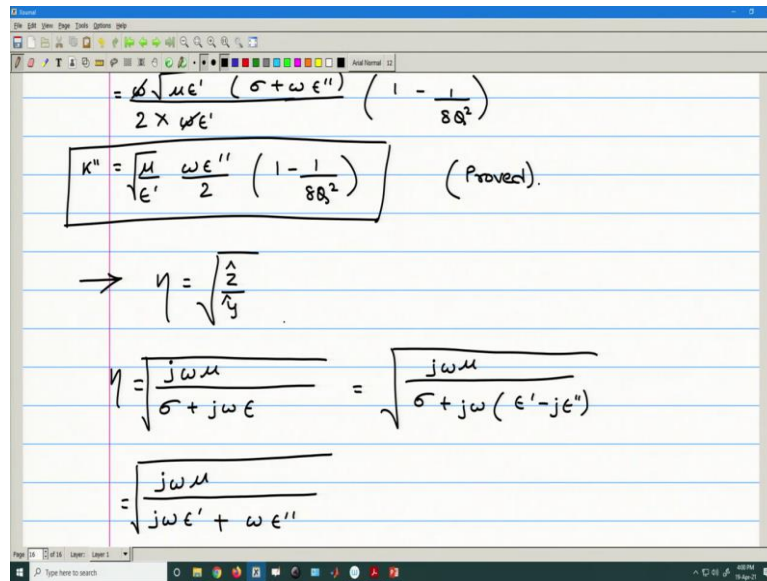 Xournal
File Edit View Page Tools Options Help
Arial Normal 12
= ω√με' (σ + ωε'') / 2 × ωε' (1 - 1/8Q²)
K'' = √(μ/ε') ωε''/2 (1 - 1/8Q²) (Proved).
→ η = √(ẑ/ŷ)
η = √(jωμ / σ + jωε) = √(jωμ / σ + jω(ε' - jε''))
= √(jωμ / jωε' + ωε'')
Page 16 of 16 Layer: Layer 1
Type here to search
4:00 PM
19-Apr-21